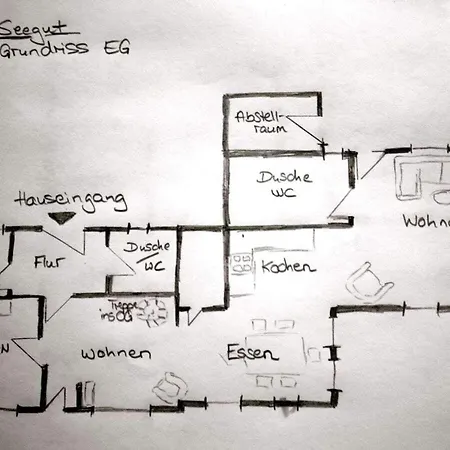 Seegut
Grundriss EG
Abstell-
raum
Dusche
WC
Hauseingang
Wohn
Dusche
WC
Flur
Kochen
Treppe
ins OG
N
Wohnen
Essen